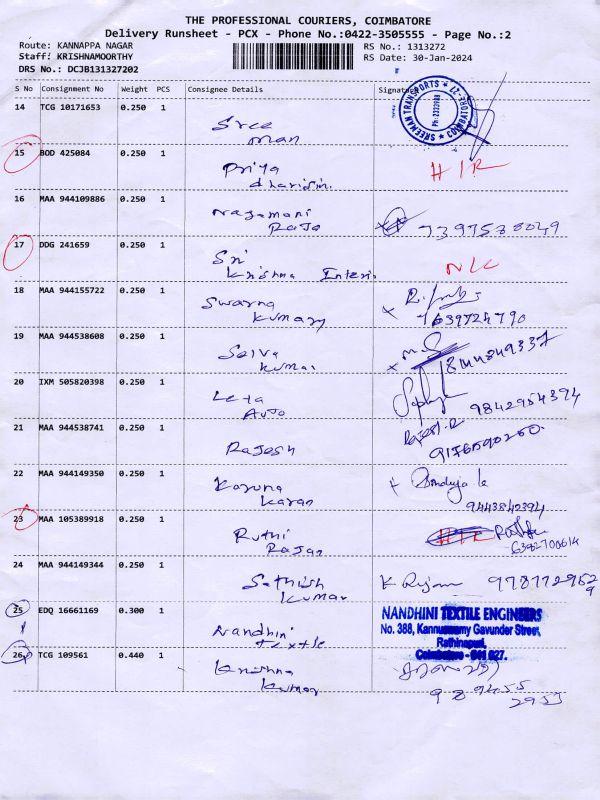 THE PROFESSIONAL COURIERS, COIMBATORE
Delivery Runsheet - PCX - Phone No.:0422-3505555 - Page No.:2
Route: KANNAPPA NAGAR
RS No.: 1313272
Staff: KRISHNAMOORTHY
RS Date: 30-Jan-2024
DRS No.: DCJB131327202
S No Consignment No Weight PCS Consignee Details Signature
14 TCG 10171653 0.250 1 Sree man
SREEMAN TRANSPORTS COIMBATORE-27
15 BOD 425084 0.250 1 Priya dharisin H/R
16 MAA 944109886 0.250 1 Nagamani Raja 7397538049
17 DDG 241659 0.250 1 Sri Krishna Interi N/C
18 MAA 944155722 0.250 1 Swarna Kumary 7639724790
19 MAA 944538608 0.250 1 Selva Kumar 8144849337
20 IXM 505820398 0.250 1 Leta Auto 9842954394
21 MAA 944538741 0.250 1 Rajesh Rajesh.R 9176590250
22 MAA 944149350 0.250 1 Karuna Karan 9443842394
23 MAA 105389918 0.250 1 Ruthi Rajan 6382700614
24 MAA 944149344 0.250 1 Sathish Kumar
25 EDQ 16661169 0.300 1 Nandhini textle
NANDHINI TEXTILE ENGINEERS
No. 388, Kannusamy Gavunder Street,
Rathinapuri,
Coimbatore - 641 027.
26 TCG 109561 0.440 1 Krishna Kumar 989455 2955